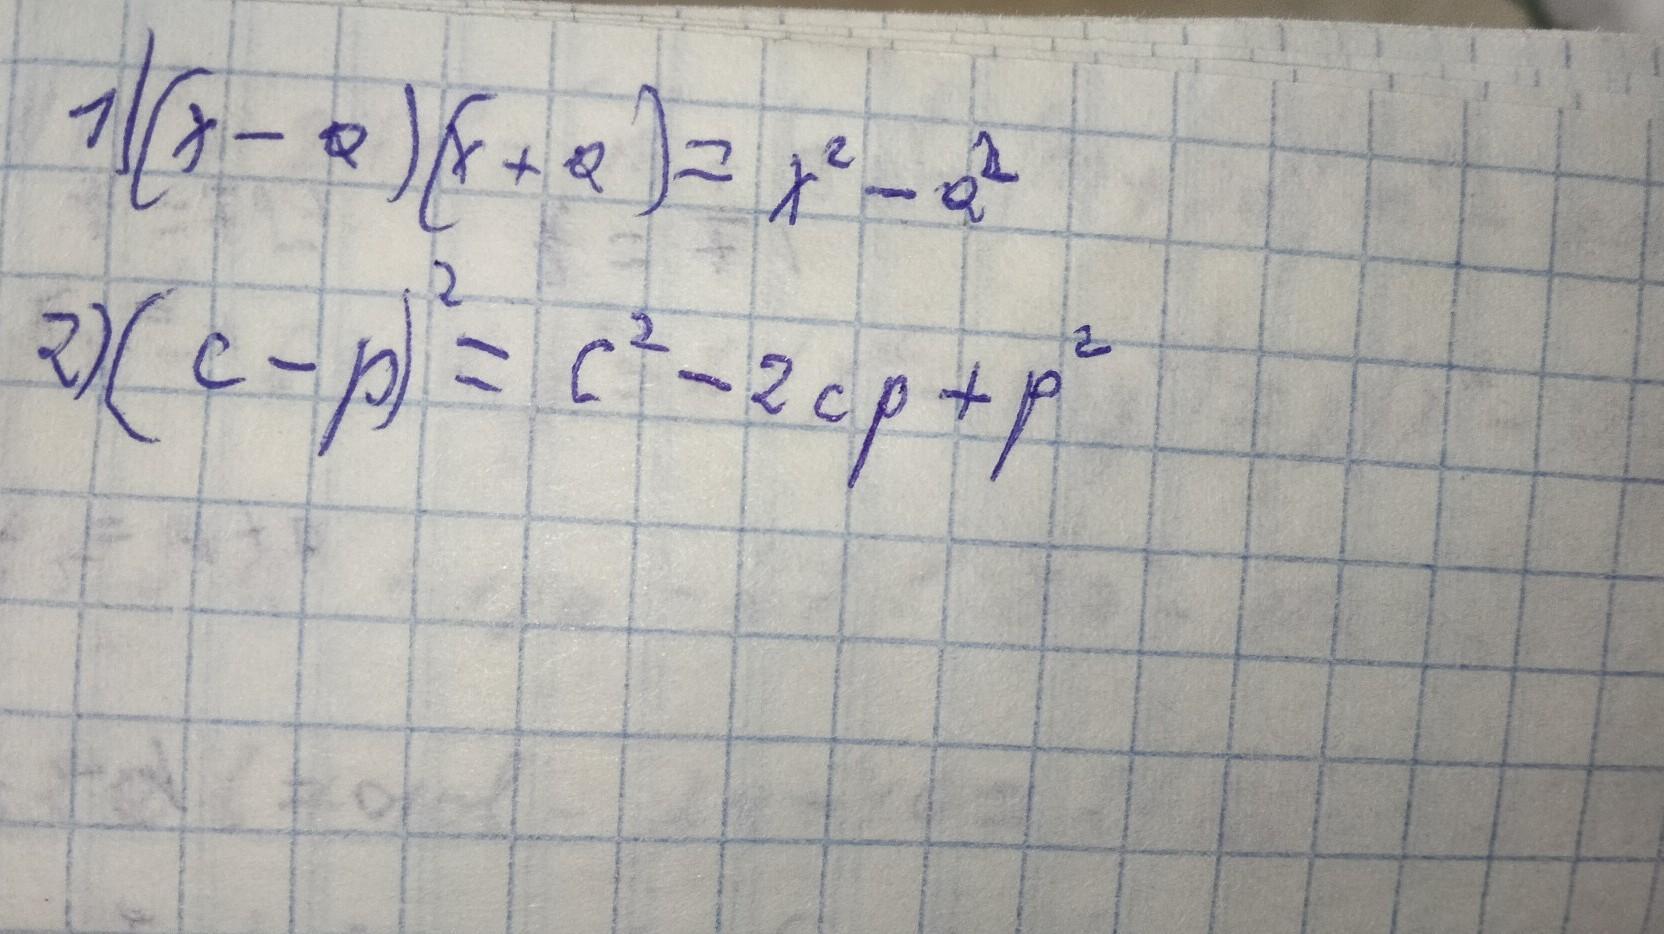 1)(x-a)(x+a)=x²-a²
2)(c-p)²=c²-2cp+p²